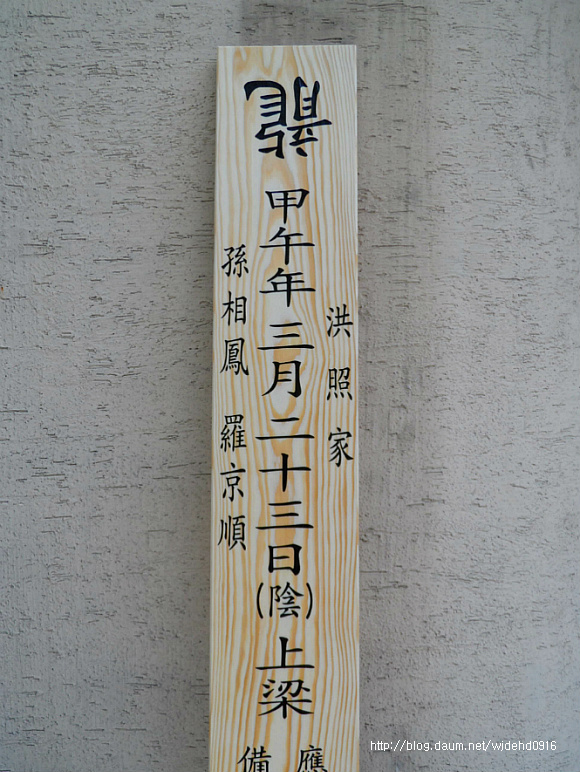 洪照家
龍 甲午年 三月二十三日(陰) 上梁
孫相鳳 羅京順
應
備
http://blog.daum.net/wjdehd0916